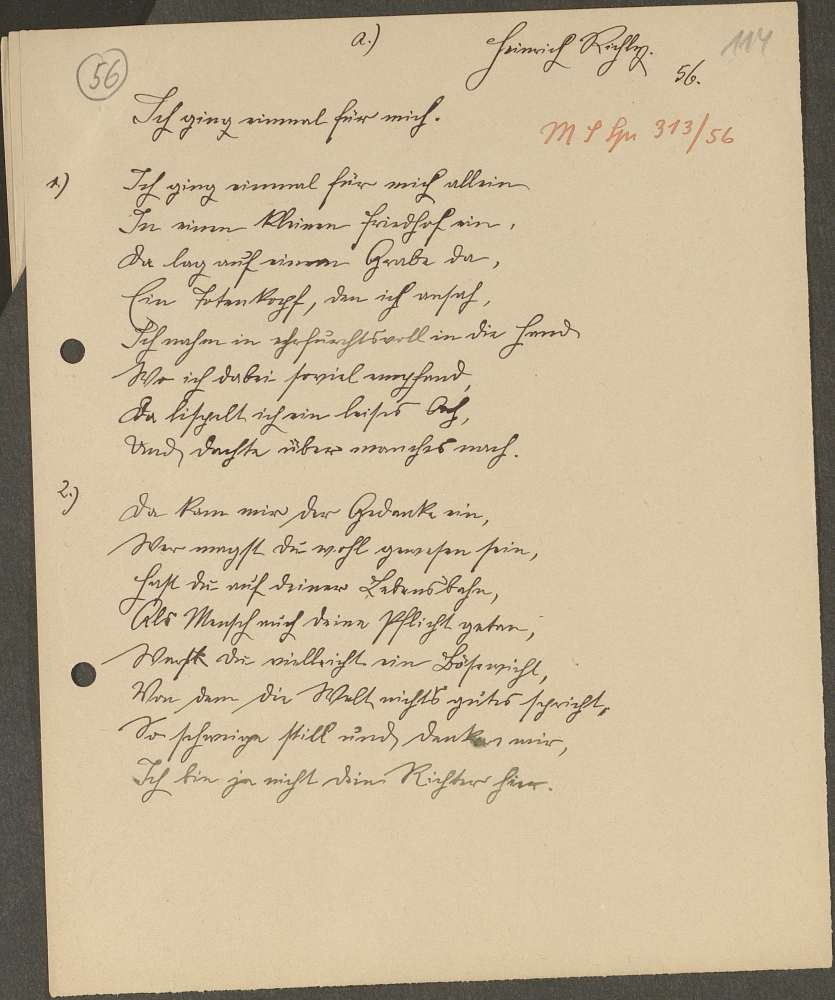 a.)
Heinrich Richly.
114
56
56.
Ich ging einmal für mich.
313/56
1.)
Ich ging einmal für mich allein
In einen kleinen Friedhof ein,
Da lag auf einem Grabe da,
Ein Totenkopf, den ich ansah,
Ich nahm in ehrfurchtsvoll in die Hand
Wo ich dabei soviel empfand,
Da lispelt ich ein leises Ach,
Und dachte über manches nach.
2.)
Da kam mir der Gedanke ein,
Wer magst du wohl gewesen sein,
Hast du auf deiner Lebensbahn,
Als Mensch auch deine Pflicht getan,
Warst du vielleicht ein Bösewicht,
Von dem die Welt nichts gutes spricht,
So schweige still und denke mir,
Ich bin ja nicht dein Richter hier.